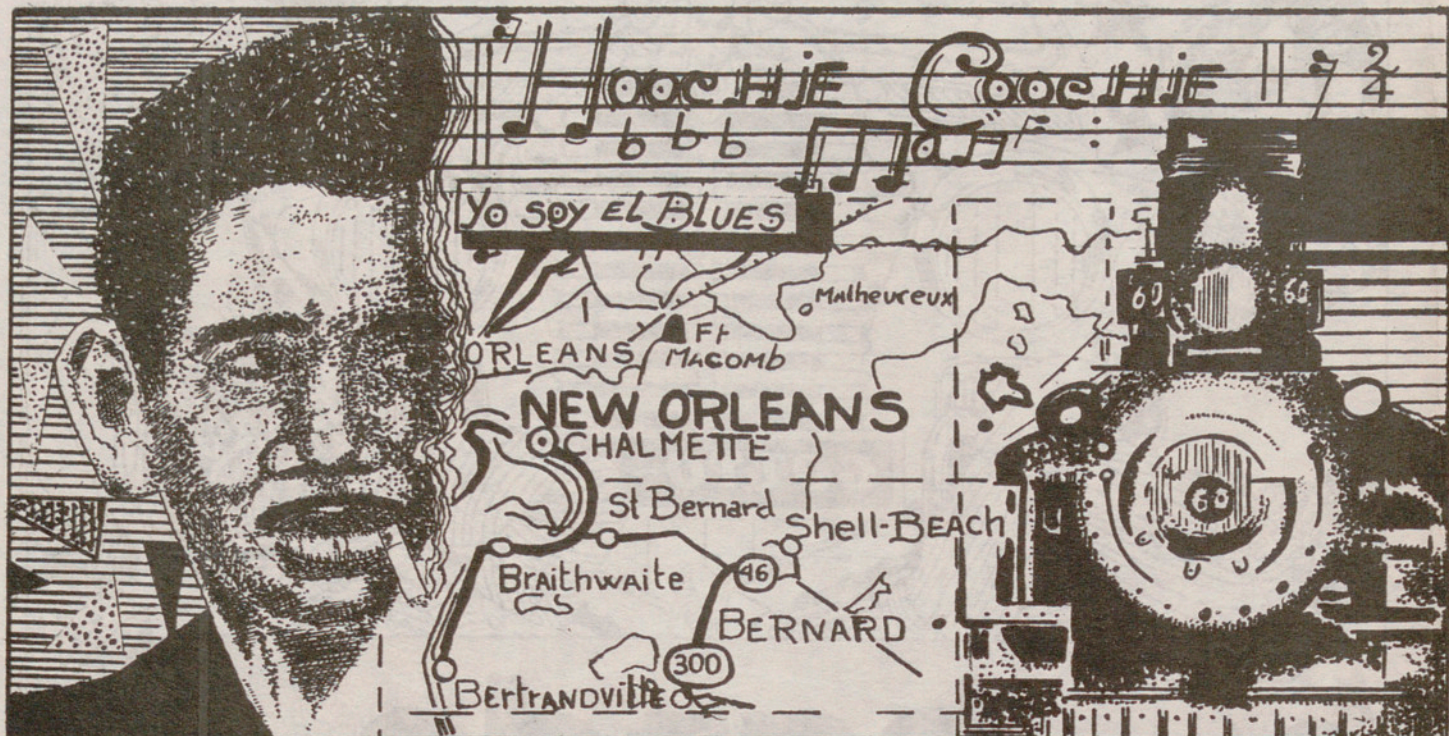 HOOCHIE COOCHIE
2
4
YO SOY EL BLUES
Malheureux
Ft
MACOMB
ORLEANS
NEW ORLEANS
CHALMETTE
St Bernard
Shell-BEACH
Braithwaite
46
BERNARD
300
BERTRANDVILLE
60
60
60